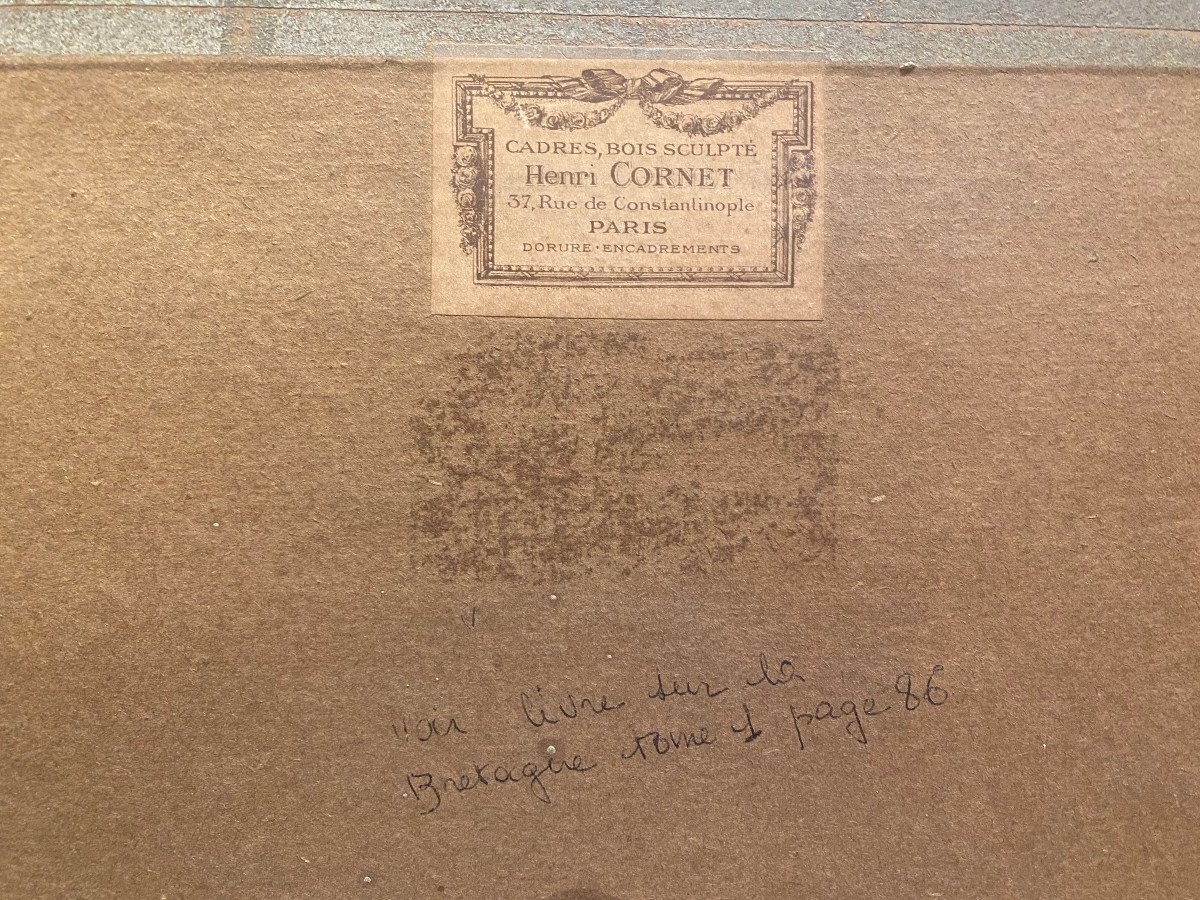 CADRES, BOIS SCULPTÉ
Henri CORNET
37, Rue de Constantinople
PARIS
DORURE · ENCADREMENTS
voir livre sur la
Bretagne tome 1 page 86